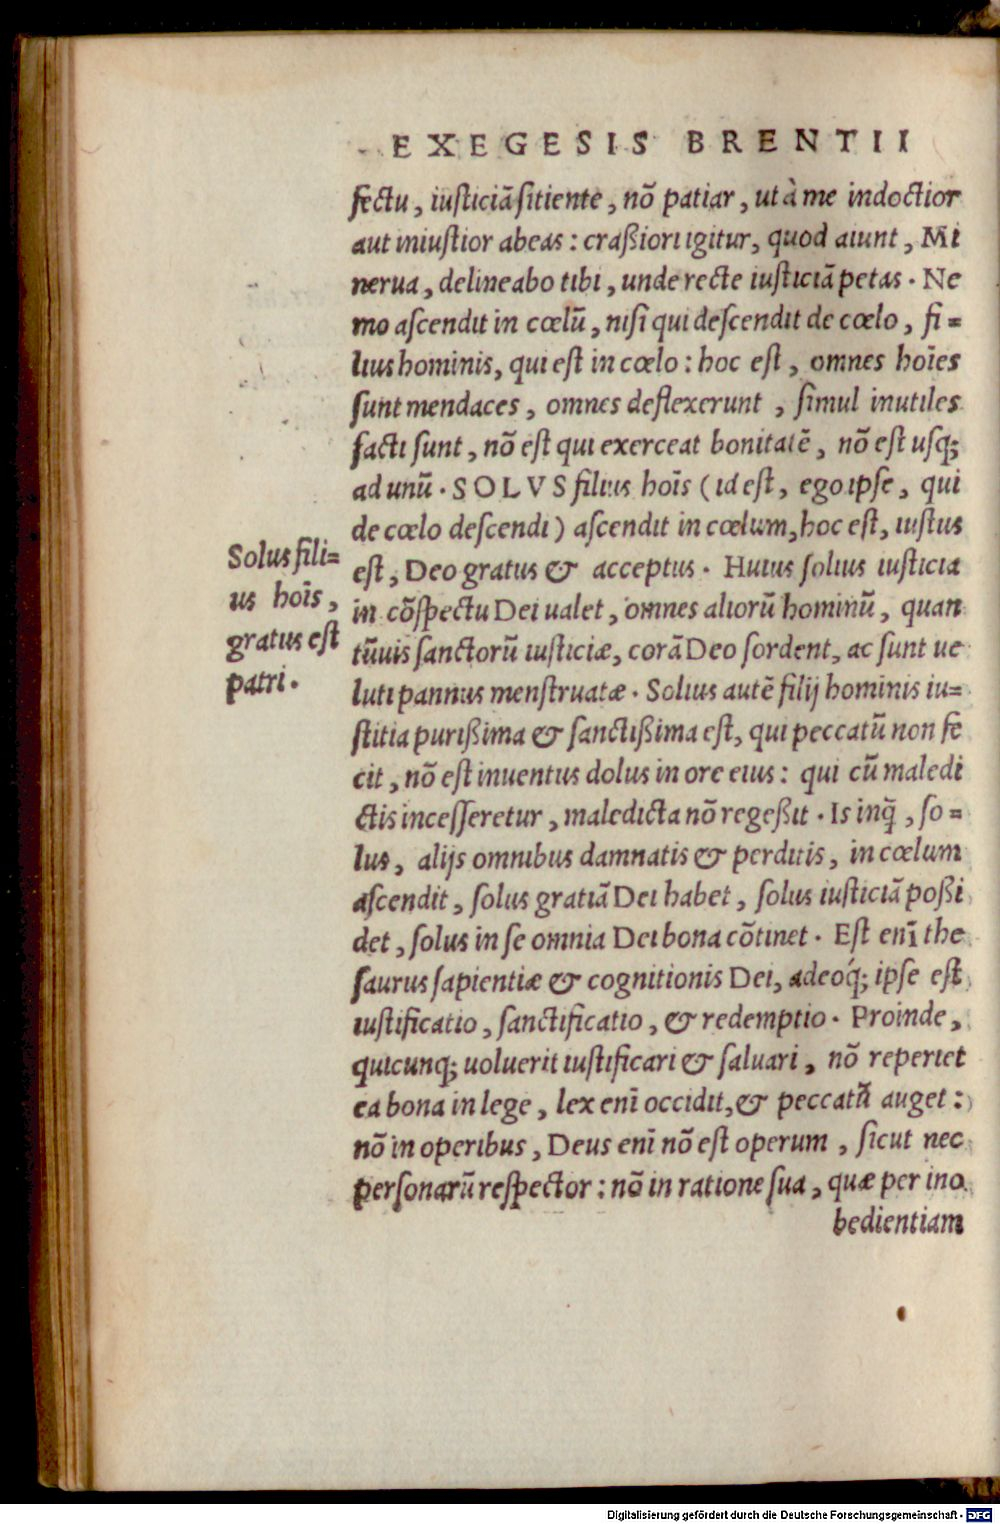 EXEGESIS BRENTII
fectu, iusticiã sitiente, nõ patiar, ut à me indoctior
aut iniustior abeas: craßiori igitur, quod aiunt, Mi
nerua, delineabo tibi, unde recte iusticiã petas. Ne
mo ascendit in cœlũ, nisi qui descendit de cœlo, fi=
lius hominis, qui est in cœlo: hoc est, omnes hoĩes
sunt mendaces, omnes deflexerunt, simul inutiles
facti sunt, nõ est qui exerceat bonitatẽ, nõ est usq;
ad unũ. SOLVS filius hoĩs (id est, ego ipse, qui
de cœlo descendi) ascendit in cœlum, hoc est, iustus
est, Deo gratus & acceptus. Huius solius iusticia
in cõspectu Dei ualet, omnes aliorũ hominũ, quan
tũuis sanctorũ iusticiæ, corã Deo sordent, ac sunt ue
luti pannus menstruatæ. Solius autẽ filij hominis iu=
stitia purißima & sanctißima est, qui peccatũ non fe
cit, nõ est inuentus dolus in ore eius: qui cũ maledi
ctis incesseretur, maledicta nõ regeßit. Is inq̃, so=
lus, alijs omnibus damnatis & perditis, in cœlum
ascendit, solus gratiã Dei habet, solus iusticiã poßi
det, solus in se omnia Dei bona cõtinet. Est enĩ the
saurus sapientiæ & cognitionis Dei, adeóq; ipse est
iustificatio, sanctificatio, & redemptio. Proinde,
quicunq; uoluerit iustificari & saluari, nõ reperiet
ea bona in lege, lex enĩ occidit, & peccatũ auget:
nõ in operibus, Deus enĩ nõ est operum, sicut nec
personarũ respector: nõ in ratione sua, quæ per ino
bedientiam
Solus fili=
us hoĩs,
gratus est
patri.
Digitalisierung gefördert durch die Deutsche Forschungsgemeinschaft - DFG